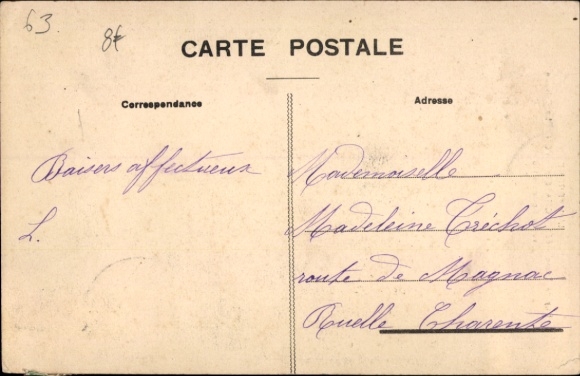 63.
8€
CARTE POSTALE
Correspondance
Adresse
Baisers affectueux
L.
Mademoiselle
Madeleine Tréchot
route de Magnac
Ruelle Charente